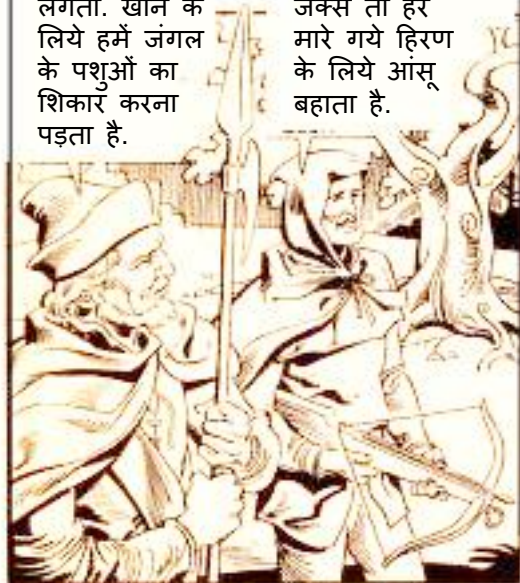 लगता. खाने के
लिये हमें जंगल
के पशुओं का
शिकार करना
पड़ता है.
जैक्स तो हर
मारे गये हिरण
के लिये आंसू
बहाता है.